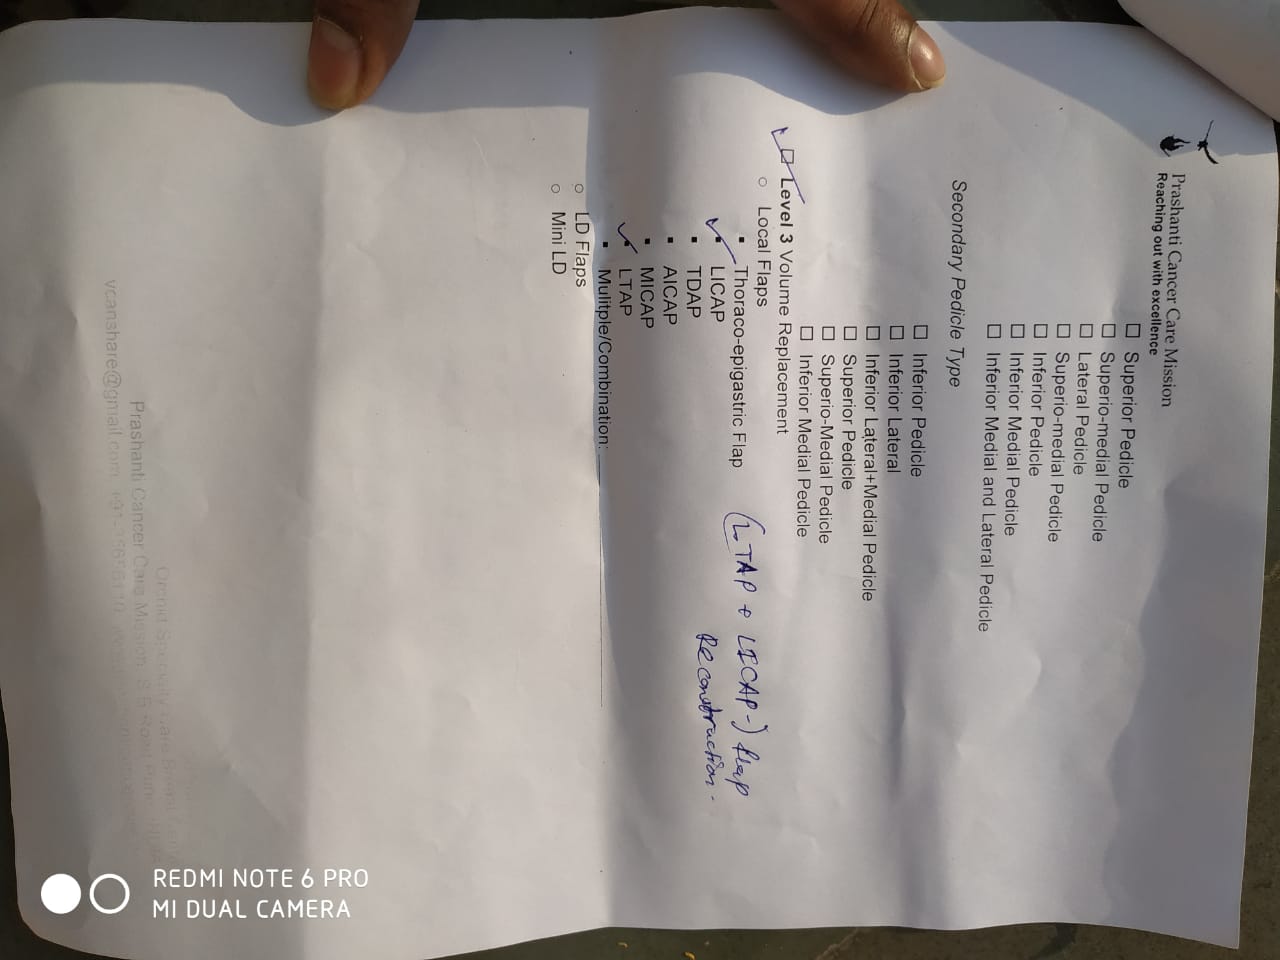 Prashanti Cancer Care Mission
Reaching out with excellence
☐ Superior Pedicle
☐ Superio-medial Pedicle
☐ Lateral Pedicle
☐ Superio-medial Pedicle
☐ Inferior Pedicle
☐ Inferior Medial Pedicle
☐ Inferior Medial and Lateral Pedicle
Secondary Pedicle Type
☐ Inferior Pedicle
☐ Inferior Lateral
☐ Inferior Lateral+Medial Pedicle
☐ Superior Pedicle
☐ Superio-Medial Pedicle
☐ Inferior Medial Pedicle
☐ Level 3 Volume Replacement
○ Local Flaps
▪ Thoraco-epigastric Flap
(LTAP + LICAP-) flap
Reconstruction -
▪ LICAP
▪ TDAP
▪ AICAP
▪ MICAP
▪ LTAP
▪ Mulitple/Combination:
○ LD Flaps
○ Mini LD
Prashanti Cancer Care Mission
vcanshare@gmail.com
REDMI NOTE 6 PRO
MI DUAL CAMERA